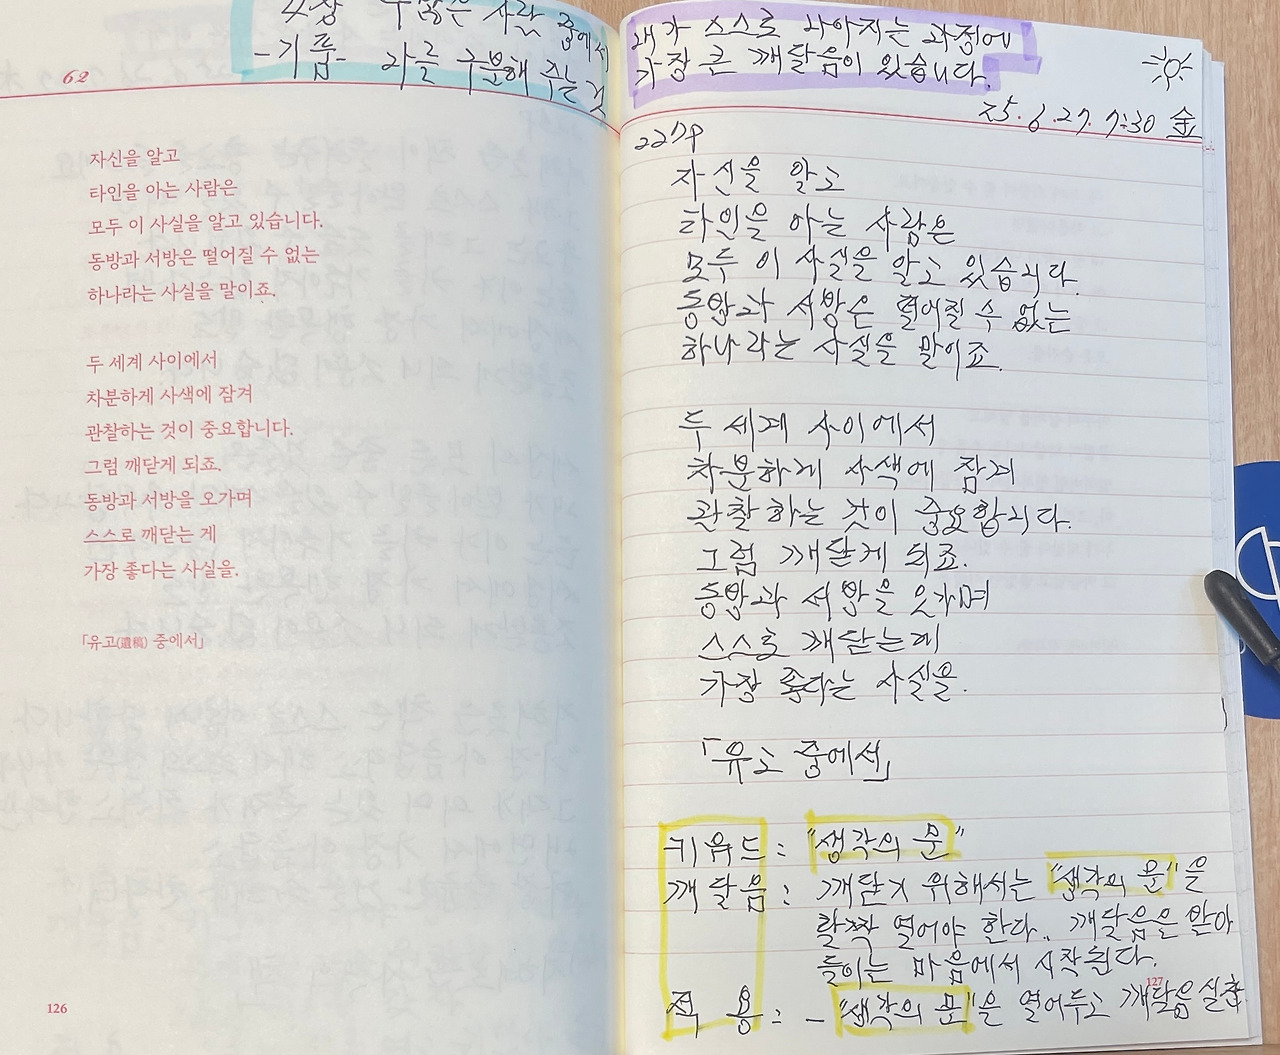 수많은 사람 중에서
-기품- 나를 구분해 주는 것
62
자신을 알고
타인을 아는 사람은
모두 이 사실을 알고 있습니다.
동방과 서방은 떨어질 수 없는
하나라는 사실을 말이죠.
두 세계 사이에서
차분하게 사색에 잠겨
관찰하는 것이 중요합니다.
그럼 깨닫게 되죠.
동방과 서방을 오가며
스스로 깨닫는 게
가장 좋다는 사실을.
「유고(遺稿) 중에서」
126
내가 스스로 나아지는 과정에
가장 큰 깨달음이 있습니다.
25.6.27. 7:30 金
227P
자신을 알고
타인을 아는 사람은
모두 이 사실을 알고 있습니다.
동방과 서방은 떨어질 수 없는
하나라는 사실을 말이죠.
두 세계 사이에서
차분하게 사색에 잠겨
관찰하는 것이 중요합니다.
그럼 깨닫게 되죠.
동방과 서방을 오가며
스스로 깨닫는게
가장 좋다는 사실을.
「유고 중에서」
키워드 : "생각의 문"
깨달음 : 깨닫기 위해서는 "생각의 문"을
활짝 열어야 한다. 깨달음을 받아
들이는 마음에서 시작된다.
127
적 용 : - "생각의 문"을 열어두고 깨달음 실천